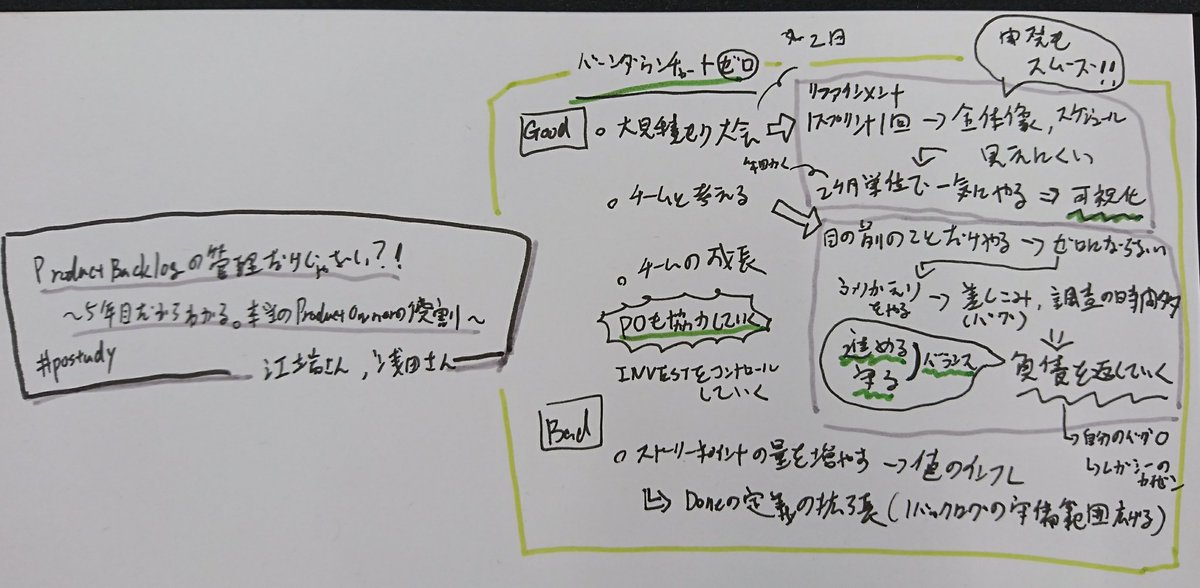 Product Backlogの管理だけじゃない?!
〜5年目だからわかる。本当のProduct Ownerの役割〜
#postudy
江端さん,浅田さん
バーンダウンチャートゼロ
2日
Good
大見積もり大会
リファインメント
1スプリント1回→全体像,スケジュール
見えにくい
2ヶ月単位で一気にやる⇒可視化
スムーズ!!
チームと考える
目の前のことだけやる→ゼロにならない
ふりかえり
をやる
→差しこみ,調査の時間
(バグ)
負債を返していく
進める
守る
バランス
チームの成長
POも協力していく
INVESTをコントロール
していく
自分のバグ0
Bad
ストーリーポイントの量を増やす→値のインフレ
Doneの定義の拡張(1バックログの守備範囲広げる)